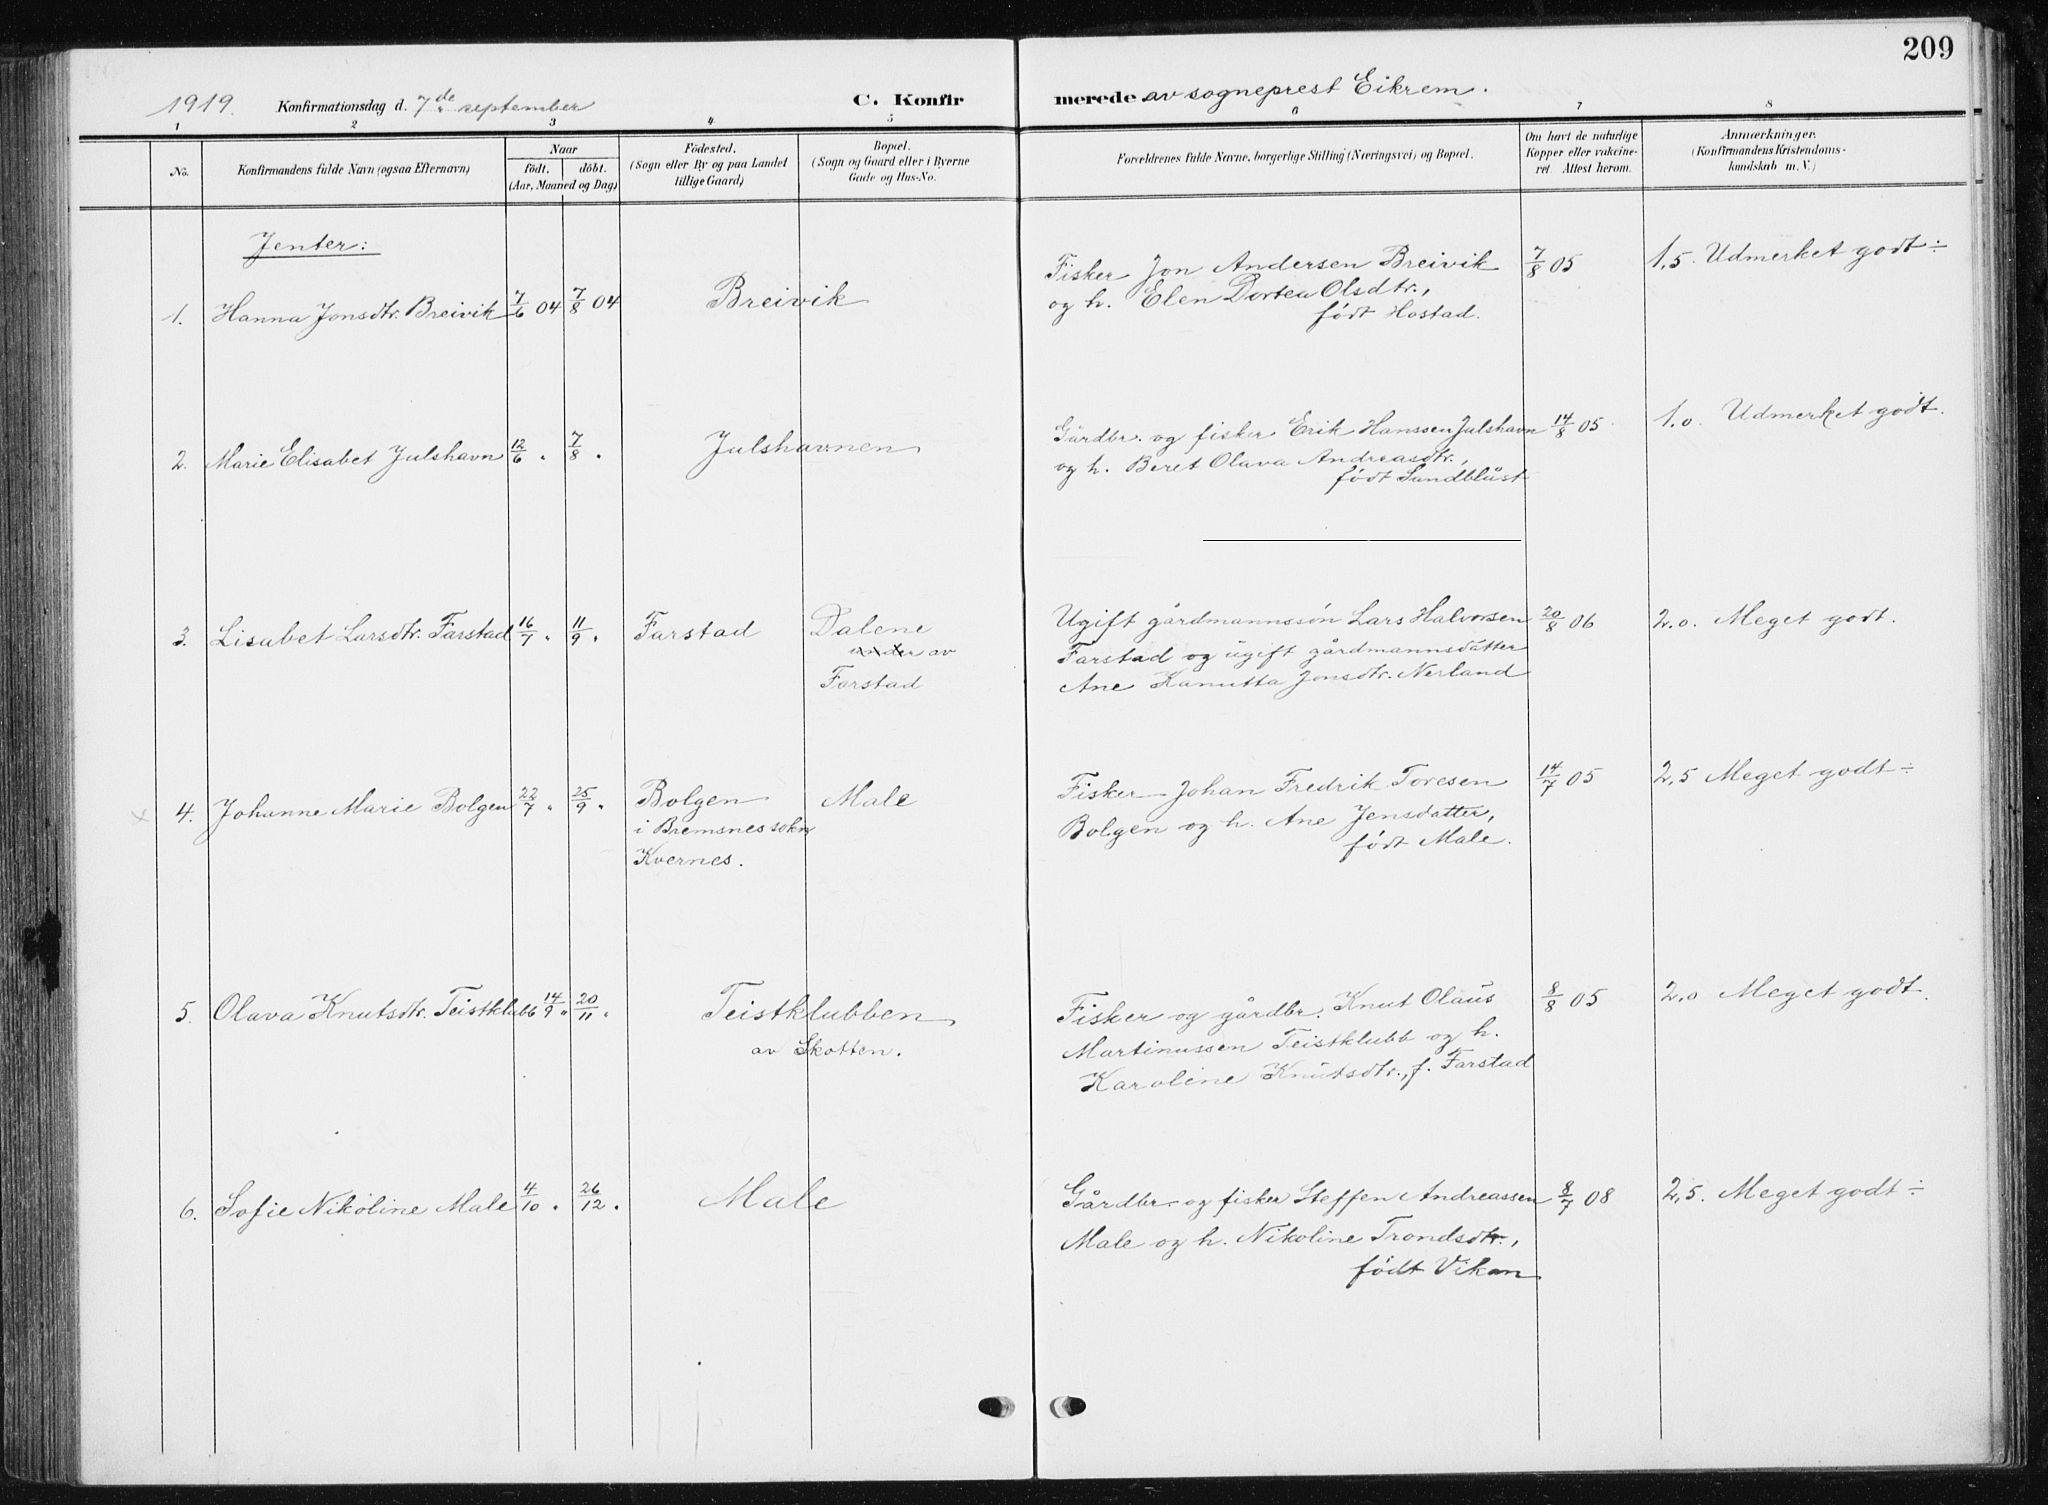 209
1919. Konfirmationsdag d. 7de september C. Konfirmerede av sogneprest Eikrem.
1 2 3 4 5 6 7 8
No. Konfirmandens fulde Navn (ogsaa Efternavn) Naar födt, döbt. (Aar, Maaned og Dag) Födested. (Sogn eller By og paa Landet tillige Gaard) Bopæl. (Sogn og Gaard eller i Byerne Gade og Hus-No. Forældrenes fulde Navne, borgerlige Stilling (Næringsvei) og Bopæl. Om havt de naturlige Kopper eller vakcineret. Attest herom. Anmærkninger. (Konfirmandens Kristendomskundskab m. V.)
Jenter:
1. Hanna Jonsdtr. Breivik 7/6 04 7/8 04 Breivik
Fisker Jon Andersen Breivik 7/8 05 1,5. Udmerket godt ÷
og h. Elen Dortea Olsdtr.,
født Hostad.
2. Marie Elisabet Julshavn 12/6 " 7/8 " Julshavnen
Gårdbr. og fisker Erik Hanssen Julshavn 14/8 05 1,0. Udmerket godt.
og h. Beret Olava Andreasdtr.,
født Sandblåst
3. Lisabet Larsdtr. Farstad 16/7 " 11/9 " Farstad Dalene
under av
Farstad
Ugift gårdmannssøn Lars Halvorsen 20/8 06 2,0. Meget godt.
Farstad og ugift gårdmannsdatter
Ane Kanutta Jonsdtr. Nerland
x 4. Johanne Marie Bolgen 22/7 " 25/9 " Bolgen Male
i Bremsnes sokn
Kvernes.
Fisker Johan Fredrik Toresen 14/7 05 2,5 Meget godt ÷
Bolgen og h. Ane Jensdatter,
født Male.
5. Olava Knutsdtr. Teistklubb 14/9 " 20/11 " Teistklubben
av Skotten.
Fisker og gårdbr. Knut Olaus 8/8 05 2,0 Meget godt.
Martinussen Teistklubb og h.
Karoline Knutsdtr., f. Farstad
6. Sofie Nikoline Male 4/10 " 26/12 " Male
Gårdbr. og fisker Steffen Andreassen 8/7 08 2,5. Meget godt ÷
Male og h. Nikoline Trondsdtr.,
født Vikan